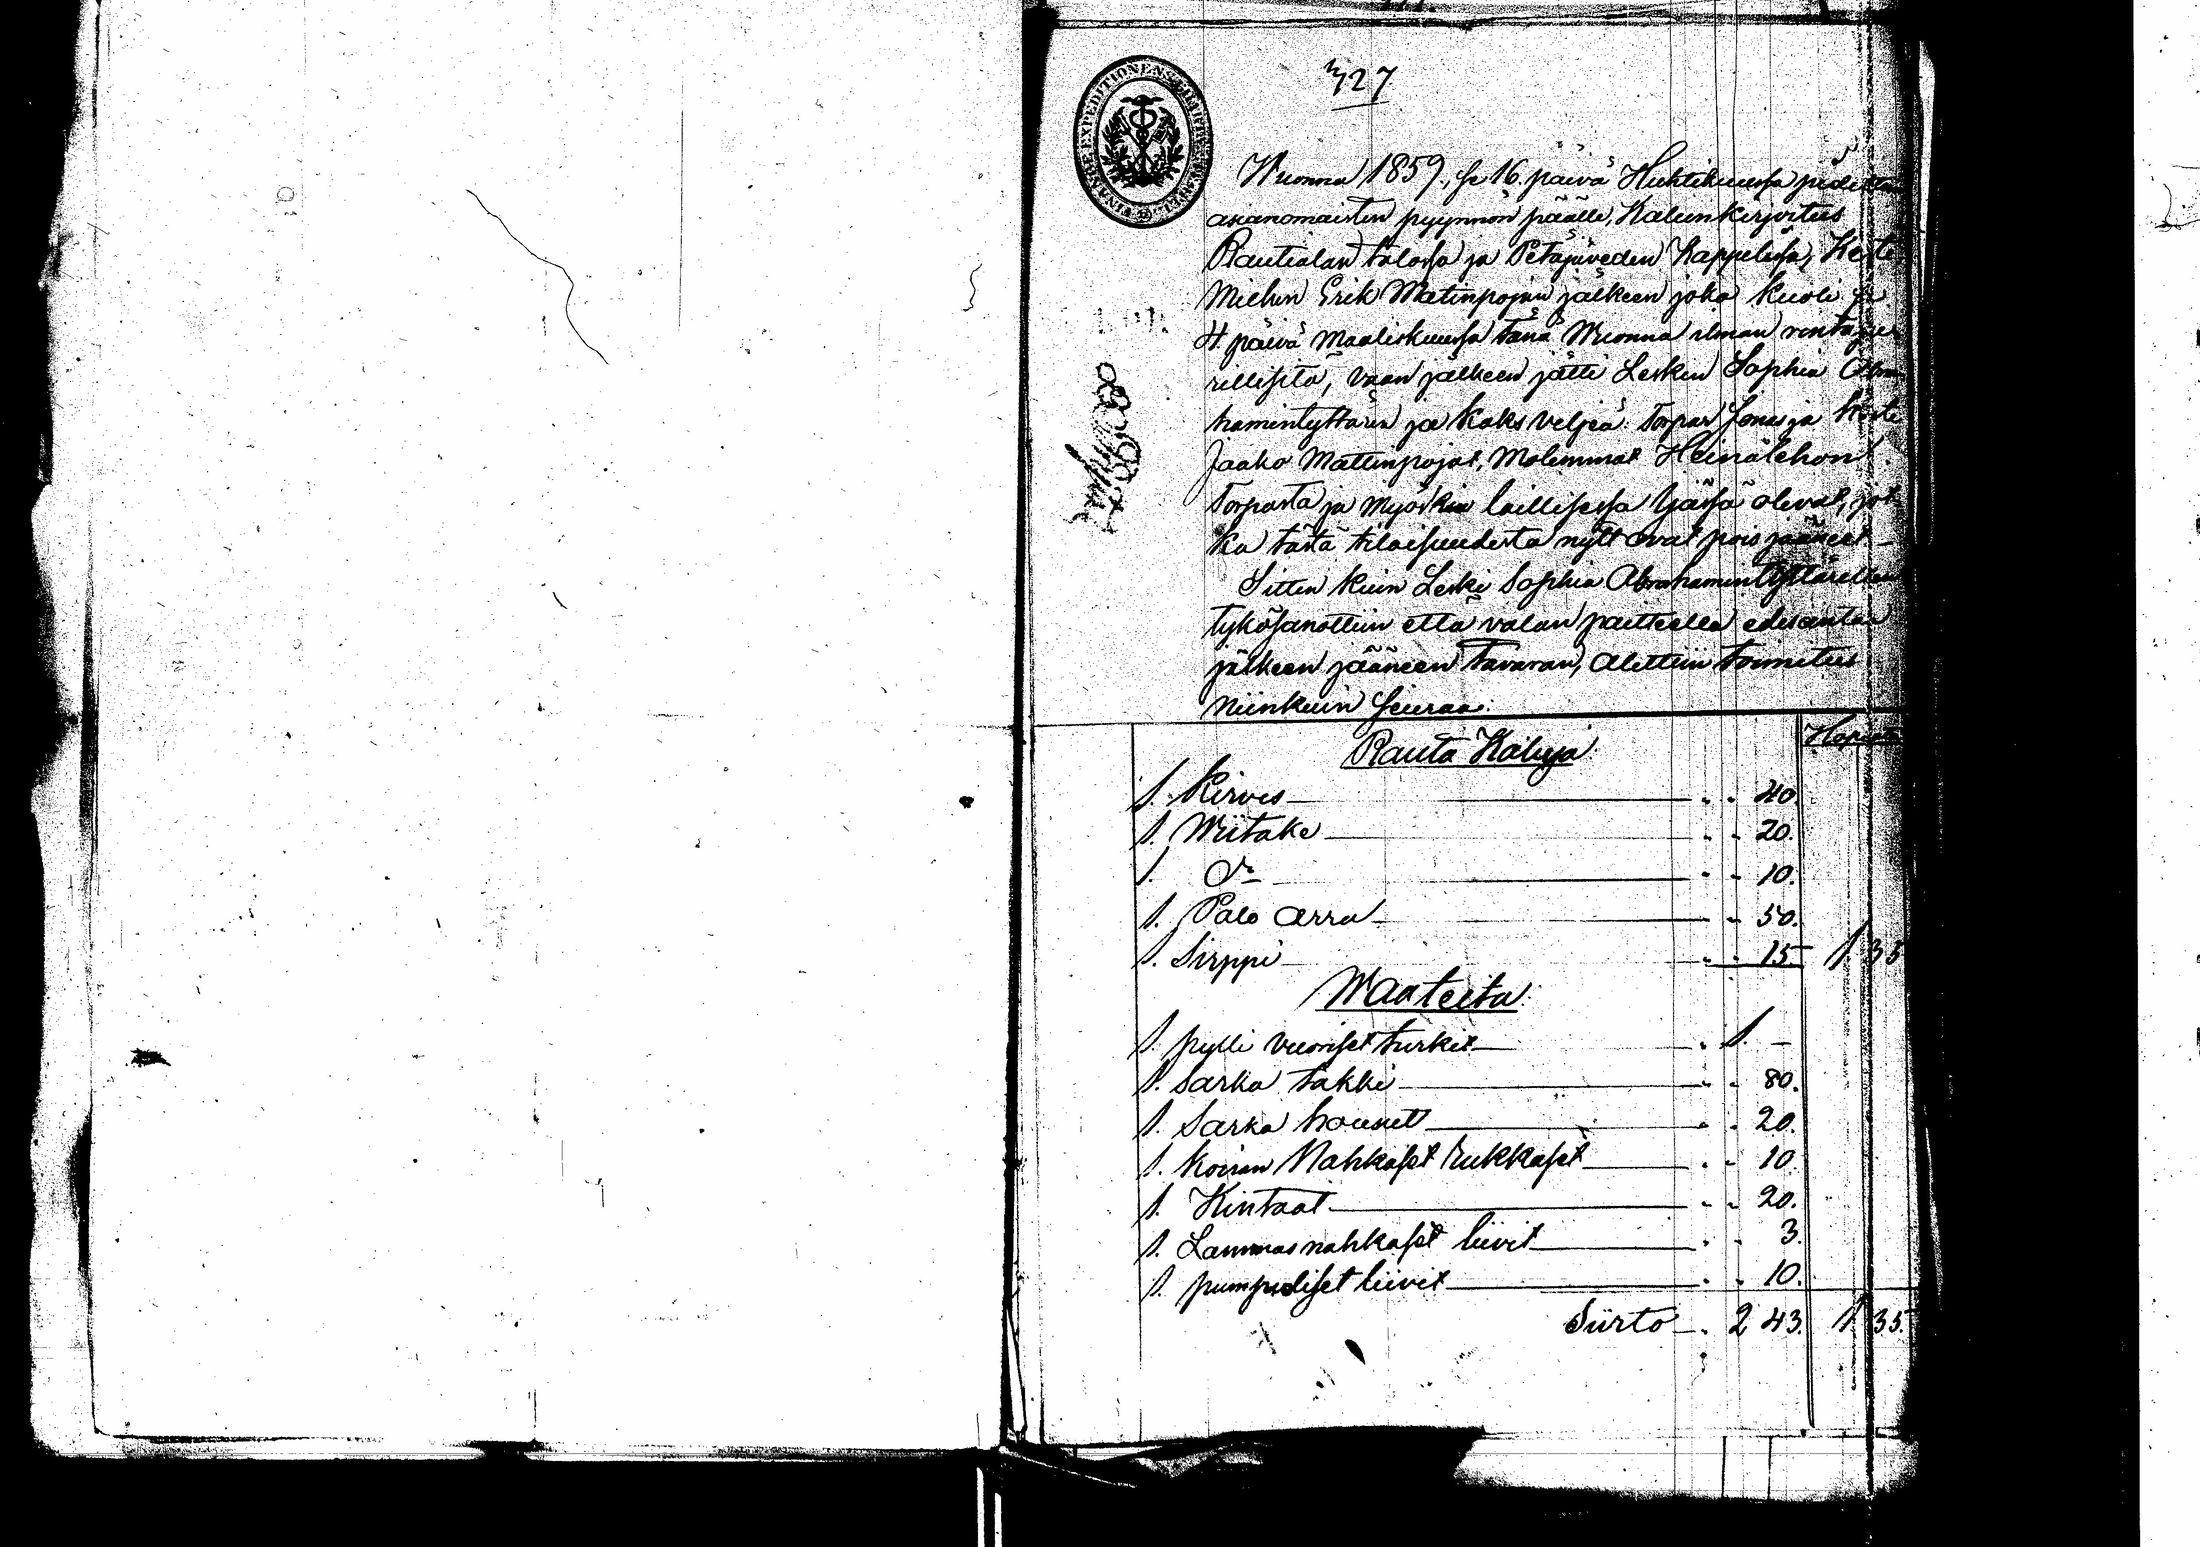 427
Wuonna 1859, se 16. päivä Huhtikuussa pidettiin
asianomaisten pyynnön päälle, Kalunkirjoitus
Rautialan talossa ja Petäjäveden kappelissa, Kesti
Miehen Erik Matinpojan jälkeen joka kuoli se
4 päivä Maaliskuussa tänä Wuonna ilman rinta
rillisitä, vaan jälkeen jätti Lesken Sophia Abra
hamintyttären ja kaks veljeä: Torpar Jonas ja Kesti
Jaako Mattinpojat, Molemmat Heinälehon
Torpasta ja Myöskin laillisessa Ijässä olevat, jot
ka tästä tilaisuudesta nytt ovat pois jääneet
Sitten kuin Leski Sophia Abrahamintyttärellen
tykösanottiin että valan paitteella edesantaa
jälkeen jääneen Tavaran, alettiin toimitus
niinkuin seuraa:
Rauta Kaluja: Hopiata
1. Kirves 40.
1. Wiitake 20.
1. Do 10.
1. Palo arra 50.
1. Sirppi 15 1. 35
Waateita:
1. pylli vuoriset turkit 1. -
1. Sarka takki 80.
1. Sarka housut 20.
1. Koiran Nahkaset rukkaset 10
1. Kintaat 20.
1. Lammasnahkaset liivit 3
1. pumpuliset liivit 10.
Siirto 2 43. 1. 35.